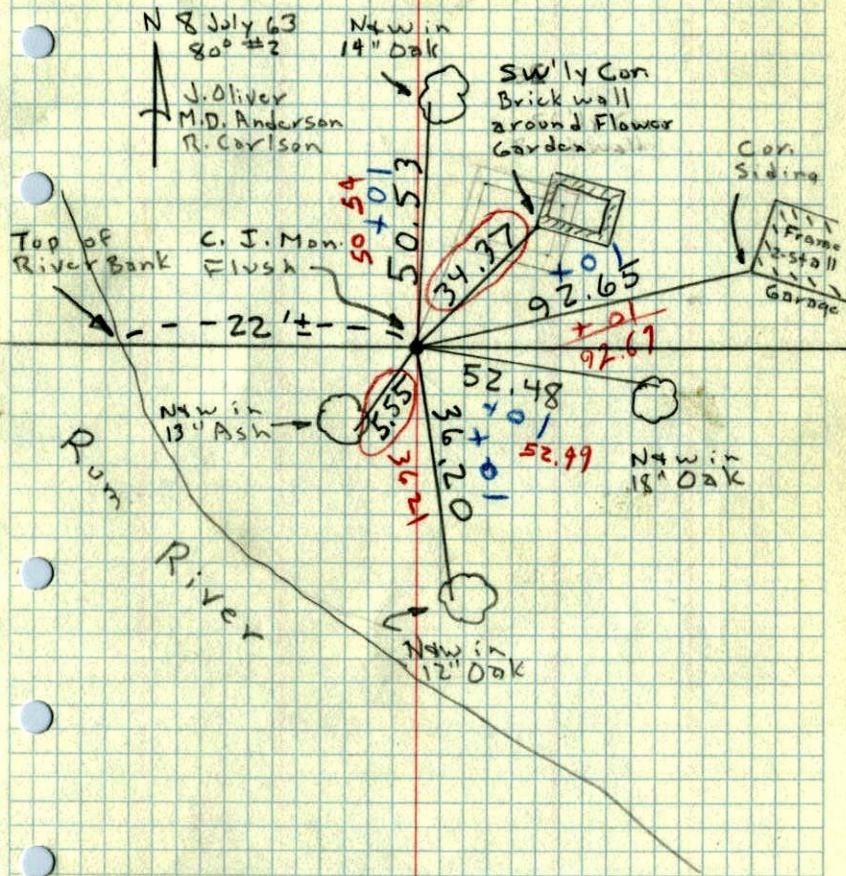 N 8 July 63
80° #2
J. Oliver
M.D. Anderson
R. Carlson
N&W in
14" Oak
SW'ly Cor
Brick wall
around Flower
Garden
Cor.
Siding
Frame
2-stall
Garage
Top of
River Bank
C. I. Mon.
Flush
50.53
+01
50 54
34.37
92.65
+01
+01
92.67
22'±
52.48
+01
52.49
5.55
36.20
+01
3621
N&W in
13" Ash
N&W in
18" Oak
N&W in
12" Oak
Rum
River